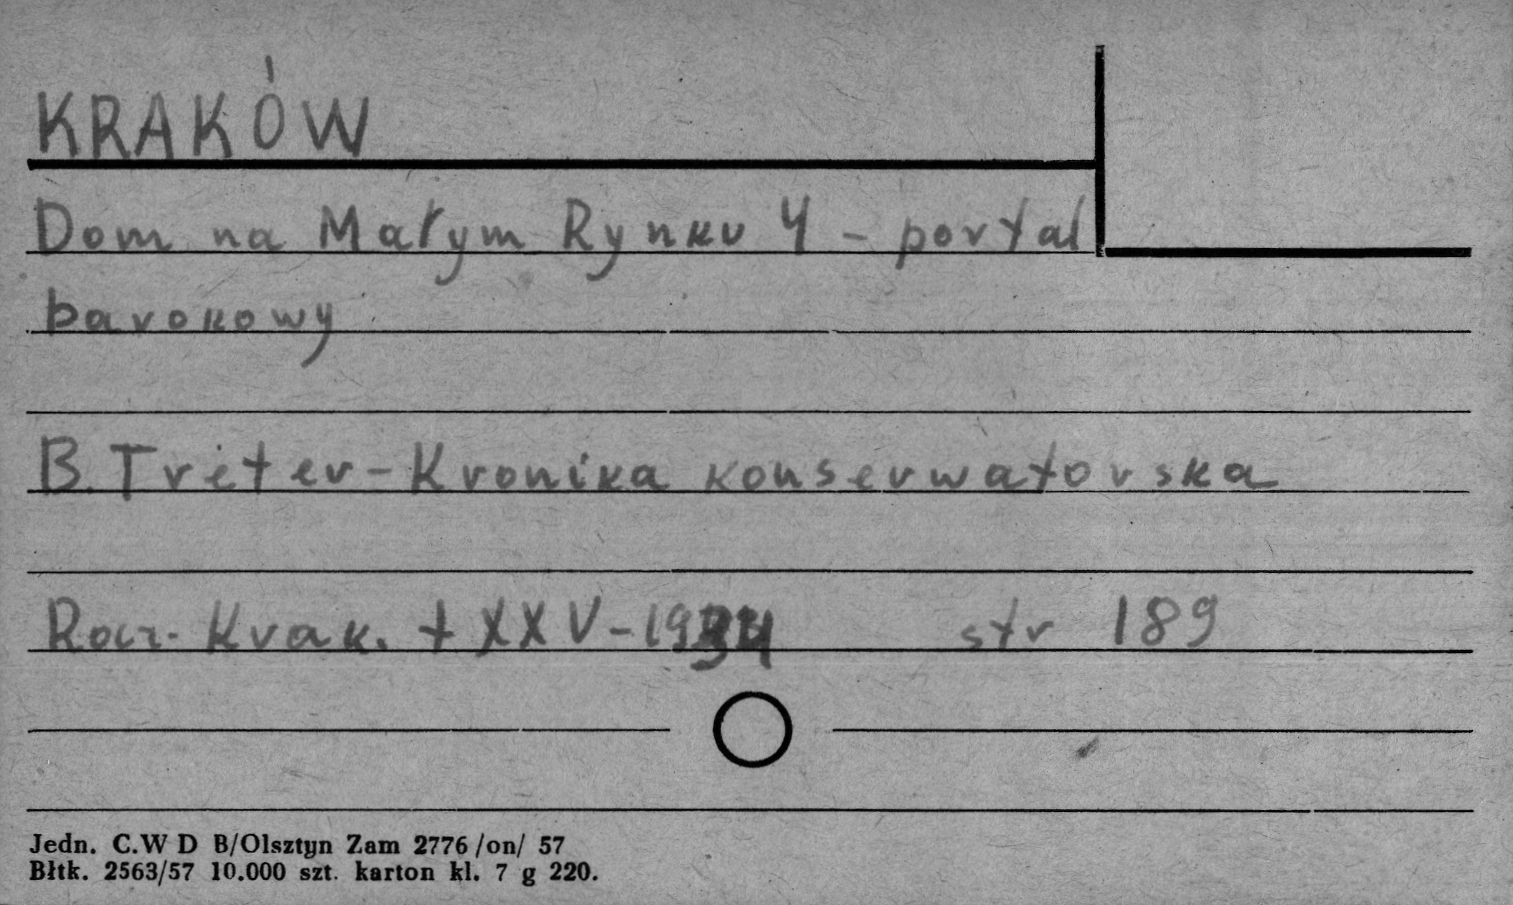 KRAKÓW
Dom na Małym Rynku 4 - portal
barokowy
B. Treter - Kronika konserwatorska
Rocz. Krak. t XXV - 1934 str 189
Jedn. C.W D B/Olsztyn Zam 2776 /on/ 57
Błtk. 2563/57 10.000 szt. karton kl. 7 g 220.